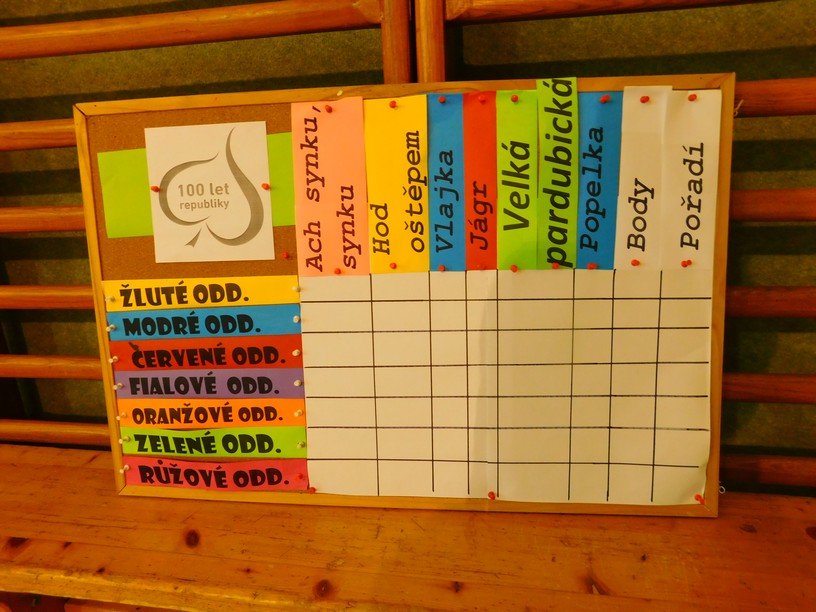 100 let
republiky
Ach synku,
synku
Hod
oštěpem
Vlajka
Jágr
Velká
pardubická
Popelka
Body
Pořadí
ŽLUTÉ ODD.
MODRÉ ODD.
ČERVENÉ ODD.
FIALOVÉ ODD.
ORANŽOVÉ ODD.
ZELENÉ ODD.
RŮŽOVÉ ODD.